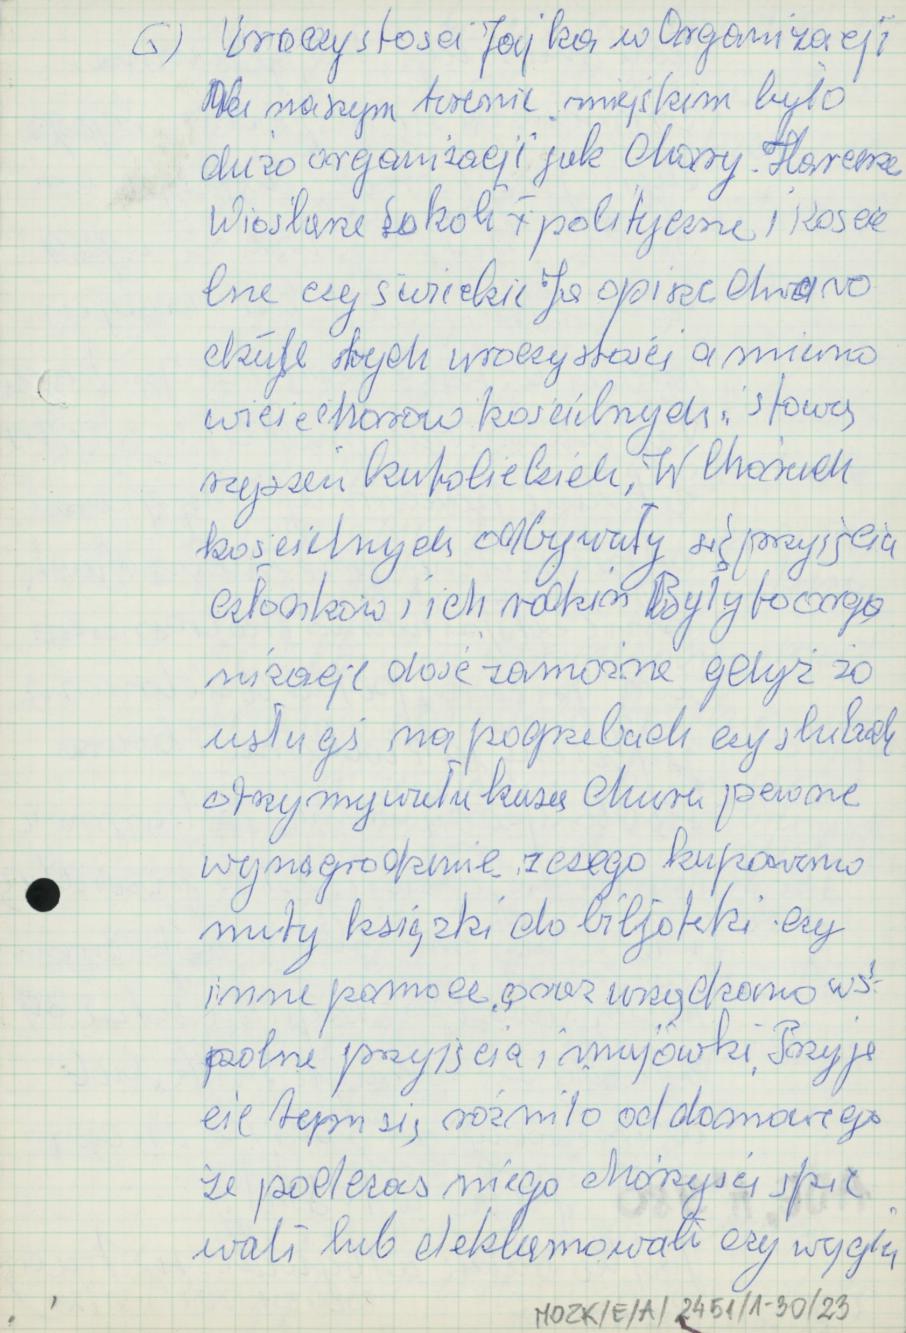 G) Uroczystości Jajka w Organizacji
Na naszym terenie miejskim było
dużo organizacji jak Chory. Harcerze
Wioślarze Sokoli i polityczne i kościе
lne czy świeckie Ja opisze
tych uroczystości a mieno
wicie chorów kościelnych i stowa
rzyszeń katolickich, W Chórach
kościelnych odbywały się przyjęcia
członków i ich rodzin Były to orga
nizacje dość zamożne gdyż za
usługę na pogrzebach czy ślubach
otrzymywała kasa Churu pewne
wynagrodzenie z czego kupowano
nuty książki do bibljoteki czy
inne pomoce, oraz urządzano wś-
polne przyjęcia i majówki, Przyję
cie tym się rożniło od domowego
że podczas niego chórzyści śpie
wali lub deklamowali czy wygła
MOZK/E/A/2451/1-30/23